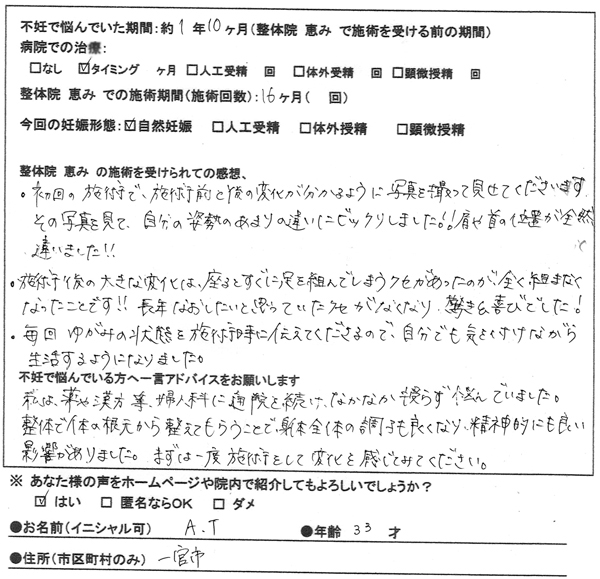 不妊で悩んでいた期間:約1年10ヶ月(整体院 恵み で施術を受ける前の期間)
病院での治療:
□なし ☑タイミング ヶ月 □人工受精 回 □体外受精 回 □顕微授精 回
整体院 恵み での施術期間(施術回数):16ヶ月( 回)
今回の妊娠形態:☑自然妊娠 □人工受精 □体外受精 □顕微授精
整体院 恵み の施術を受けられての感想、
・初回の施術で、施術前と後の変化が分かるように写真を撮って見せてくださいます
その写真を見て、自分の姿勢のあまりの違いにビックリしました!!肩や首の位置が全然
違いました!!
・施術後の大きな変化は、座るとすぐに足を組んでしまうクセがあったのが、全く組まなく
なったことです!! 長年なおしたいと思っていたクセがなくなり、驚き&喜びでした!
・毎回 ゆがみの状態を施術時に伝えてくださるので、自分でも気を付けながら
生活するようになりました。
不妊で悩んでいる方へ一言アドバイスをお願いします
私は、薬や漢方等、婦人科に通院を続け、なかなか授らず悩んでいました。
整体で体の根元から整えてもらうことで、身体全体の調子も良くなり、精神的にも良い
影響がありました。まずは一度施術をして変化を感じてみてください。
※ あなた様の声をホームページや院内で紹介してもよろしいでしょうか?
☑ はい □ 匿名ならOK □ ダメ
●お名前(イニシャル可) A.T ●年齢 33 才
●住所(市区町村のみ) 一宮市